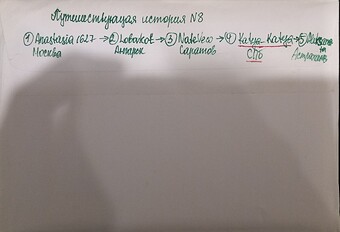 Путешествующая история N8
① Anastasia 1627 → ② Lobavkot → ③ NateVero → ④ Katya_Katya → ⑤
Москва Ангарск Саратов СПб Астрахань